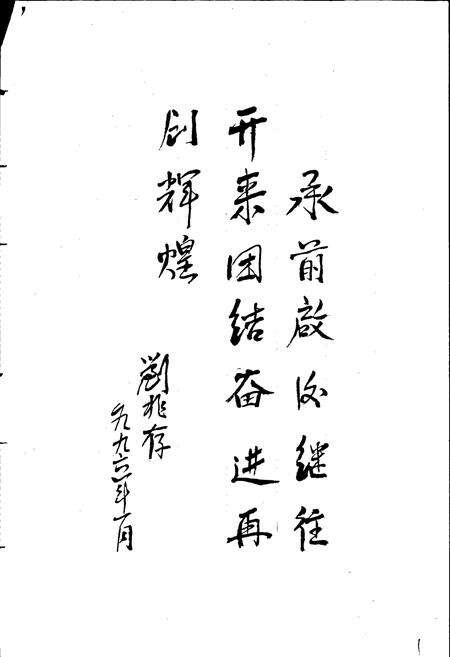 承前啟后继往
开来团结奋进再
创辉煌
劉兆存
一九九六年一月